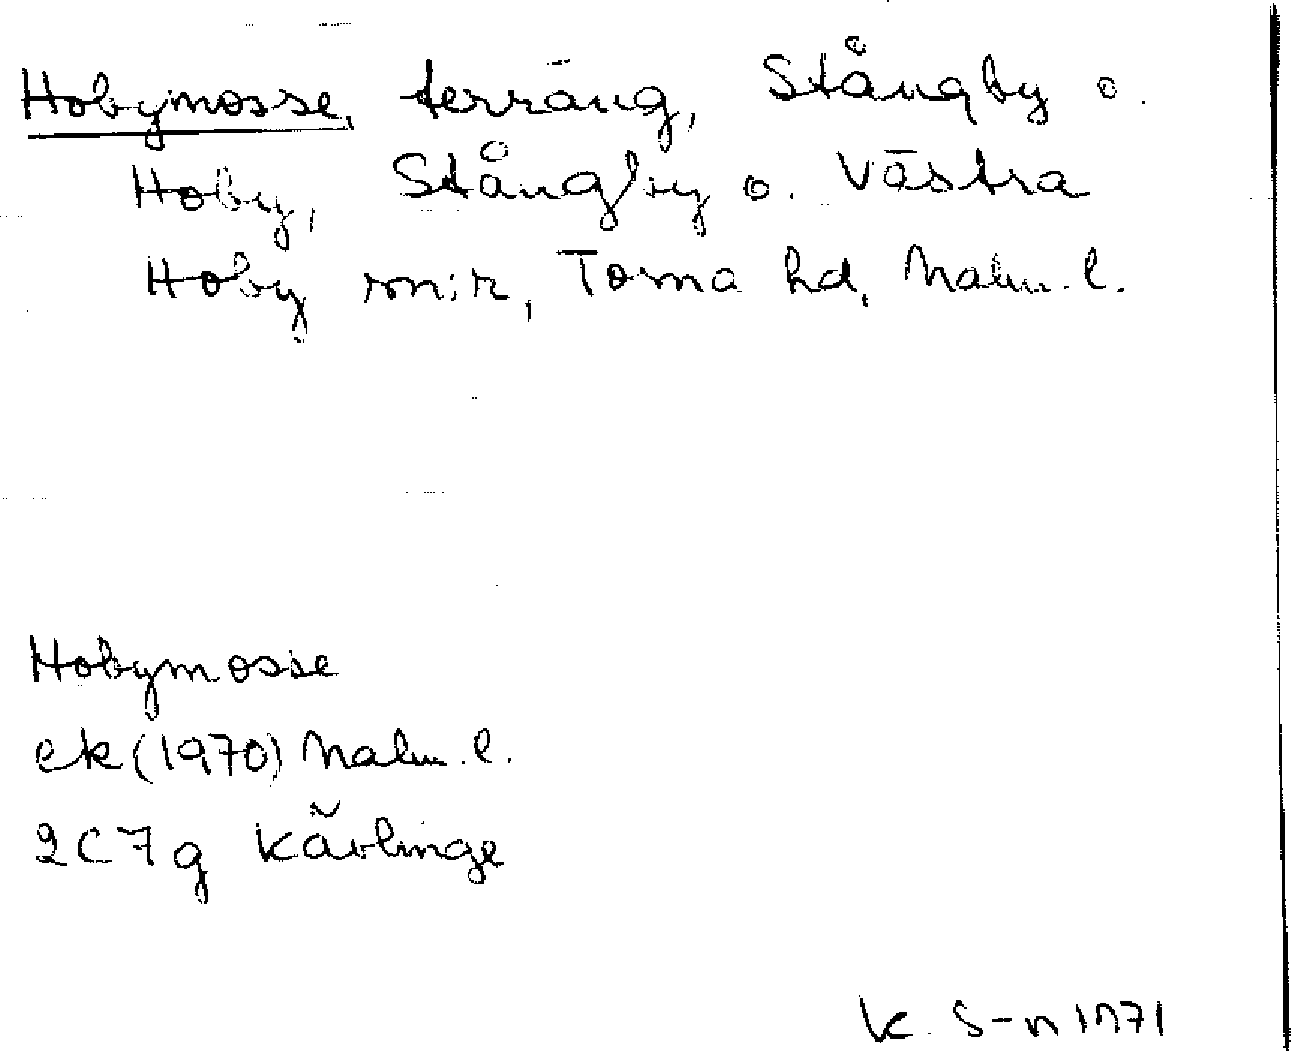 Hobymosse, terräng, Stångby o.
Hoby, Stångby o. Västra
Hoby sn:r, Torna hd, Malm. l.
Hobymosse
ek (1970) Malm. l.
2C7g Kävlinge
K. S-n 1971